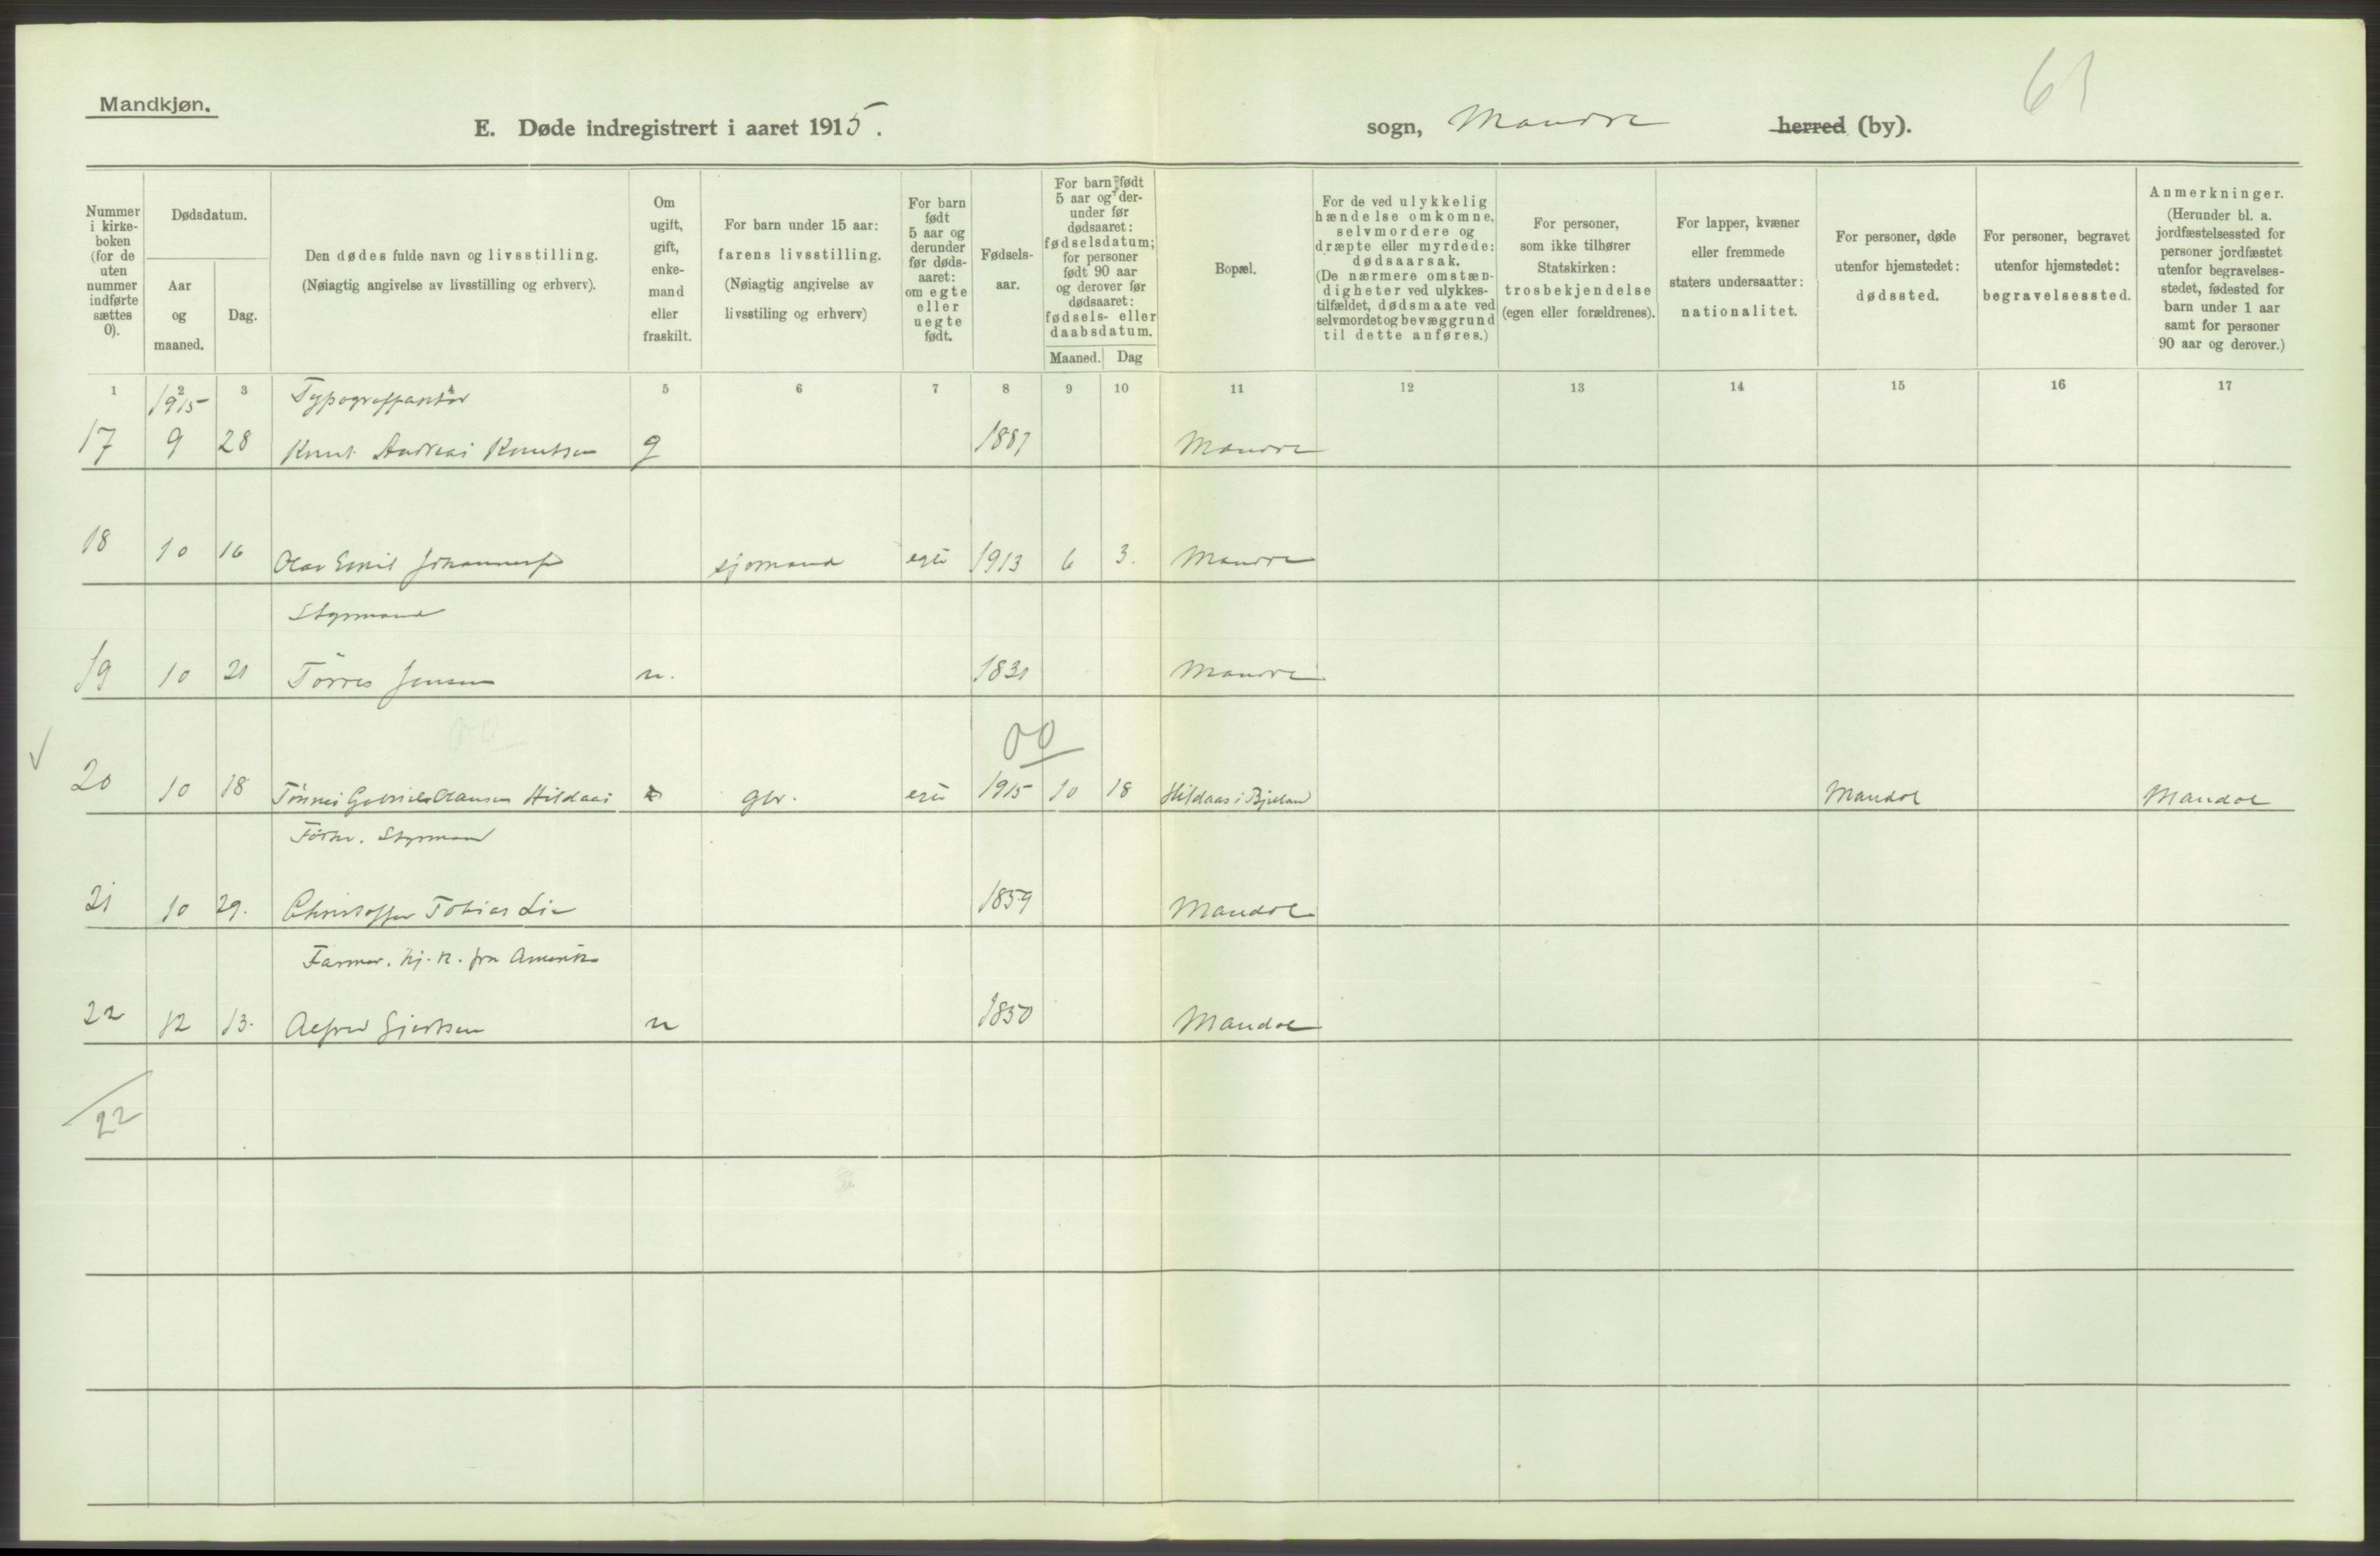 Mandkjøn.
E. Døde indregistrert i aaret 1915.
sogn, Mandal herred (by).
61
Nummer i kirkeboken (for de uten nummer indførte sættes 0).
Dødsdatum.
Aar og maaned.
Dag.
Den dødes fulde navn og livsstilling.
(Nøiagtig angivelse av livsstilling og erhverv).
Om ugift, gift, enkemand eller fraskilt.
For barn under 15 aar:
farens livsstilling.
(Nøiagtig angivelse av livsstiling og erhverv)
For barn født 5 aar og derunder før dødsaaret: om egte eller uegte født.
Fødselsaar.
For barn født 5 aar og derunder før dødsaaret: fødselsdatum; for personer født 90 aar og derover før dødsaaret: fødsels- eller daabsdatum.
Maaned. Dag
Bopæl.
For de ved ulykkelig hændelse omkomne, selvmordere og dræpte eller myrdede: dødsaarsak. (De nærmere omstændigheter ved ulykkestilfældet, dødsmaate ved selvmordet og bevæggrund til dette anføres.)
For personer, som ikke tilhører Statskirken: trosbekjendelse (egen eller forældrenes).
For lapper, kvæner eller fremmede staters undersaatter: nationalitet.
For personer, døde utenfor hjemstedet: dødssted.
For personer, begravet utenfor hjemstedet: begravelsessted.
Anmerkninger.
(Herunder bl. a. jordfæstelsessted for personer jordfæstet utenfor begravelsesstedet, fødested for barn under 1 aar samt for personer 90 aar og derover.)
1 2 3 4 5 6 7 8 9 10 11 12 13 14 15 16 17
1915
17 9 28 Knut Andreas Knutsen g 1887 Mandal
18 10 16 Olav Emil sjømand egte 1913 6 3. Mandal
Styrmand
19 10 21 Tørres Jensen u. 1831 Mandal
00
20 10 18 Tønnes Gabriel Clausen Hildaas gbr. egte 1915 10 18 Hildaas i Bjelland Mandal Mandal
Førhv. Styrmand
21 10 29. Christoffer Tobias Lie 1859 Mandal
Farmer. hj. k. fra Amerika
22 12 13. Alfred Gjertsen u 1850 Mandal
22